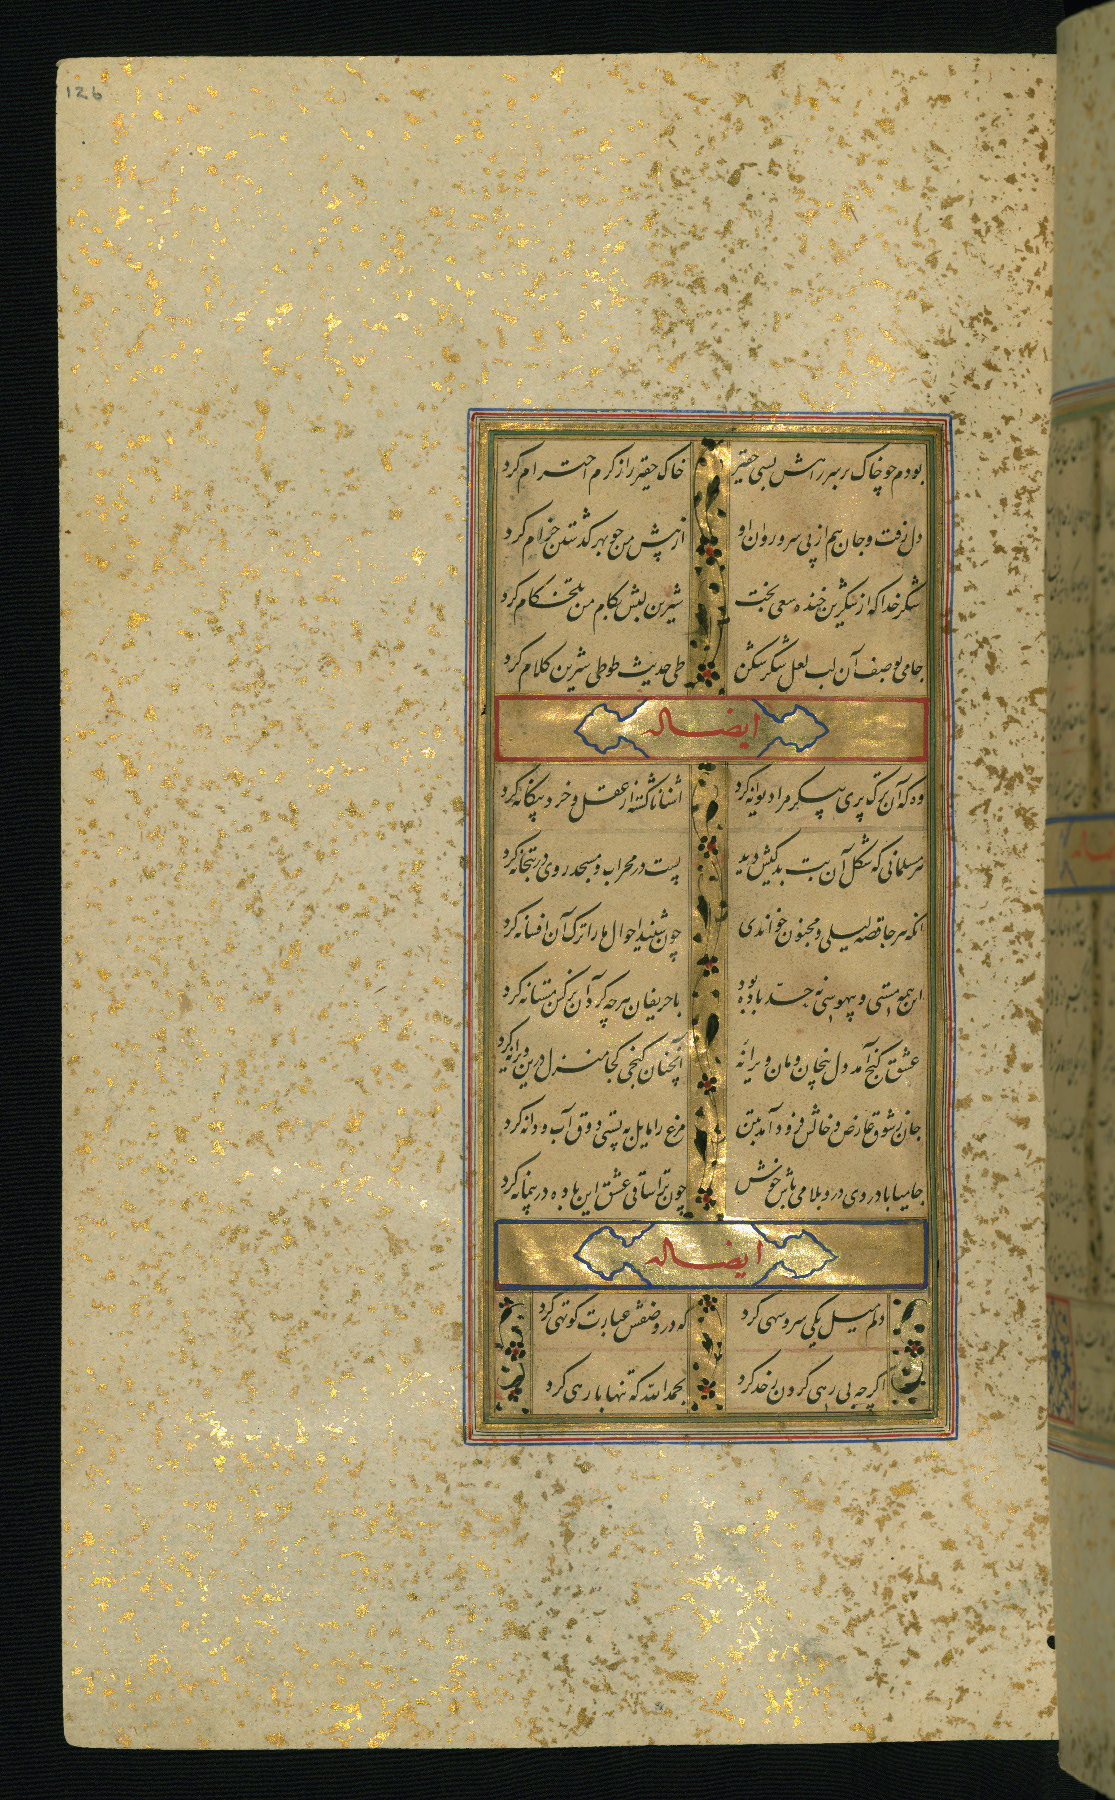 126
بودم چو خاک بر سر راهش بسی حقیر خاک حقیر را ز کرم احترام کرد
دل رفت و جان هم از پی سرو روان او از پیش من چو بهر گذشتن خرام کرد
شکر خدا که از شکرین خنده سعی بخت شیرین لبش بکام من تلخکام کرد
جامی بوصف آن لب لعل شکر شکن طی حدیث طوطی شیرین کلام کرد
ایضا له
وه که آن ترک پری پیکر مرا دیوانه کرد آشنا ناگشته از عقل و خرد بیگانه کرد
هر مسلمانی که شکل آن بت بدکیش دید پشت در محراب و مسجد روی در بتخانه کرد
آنکه هر جا قصه لیلی و مجنون خواندی چون شنید احوال ما را ترک آن افسانه کرد
این همه مستی و بیهوشی نه حد باده بود با حریفان هر چه کرد آن نرکس مستانه کرد
عشق گنج آمد دل بیخان و مان ویرانه آنچنان گنجی کجا منزل درین ویرانه کرد
جان بشوق عارض و خالش فرود آمد بتن مرغ را مایل به پستی ذوق آب و دانه کرد
جامیا با دردی درد و بلا می باش خوش چون ترا ساقی عشق این باده در پیمانه کرد
ایضا له
دلم میل یکی سرو سهی کرد که در وصفش عبارت کوتهی کرد
اگر چه بی رهی کردن نه حد کرد بحمدالله که تنها با رهی کرد